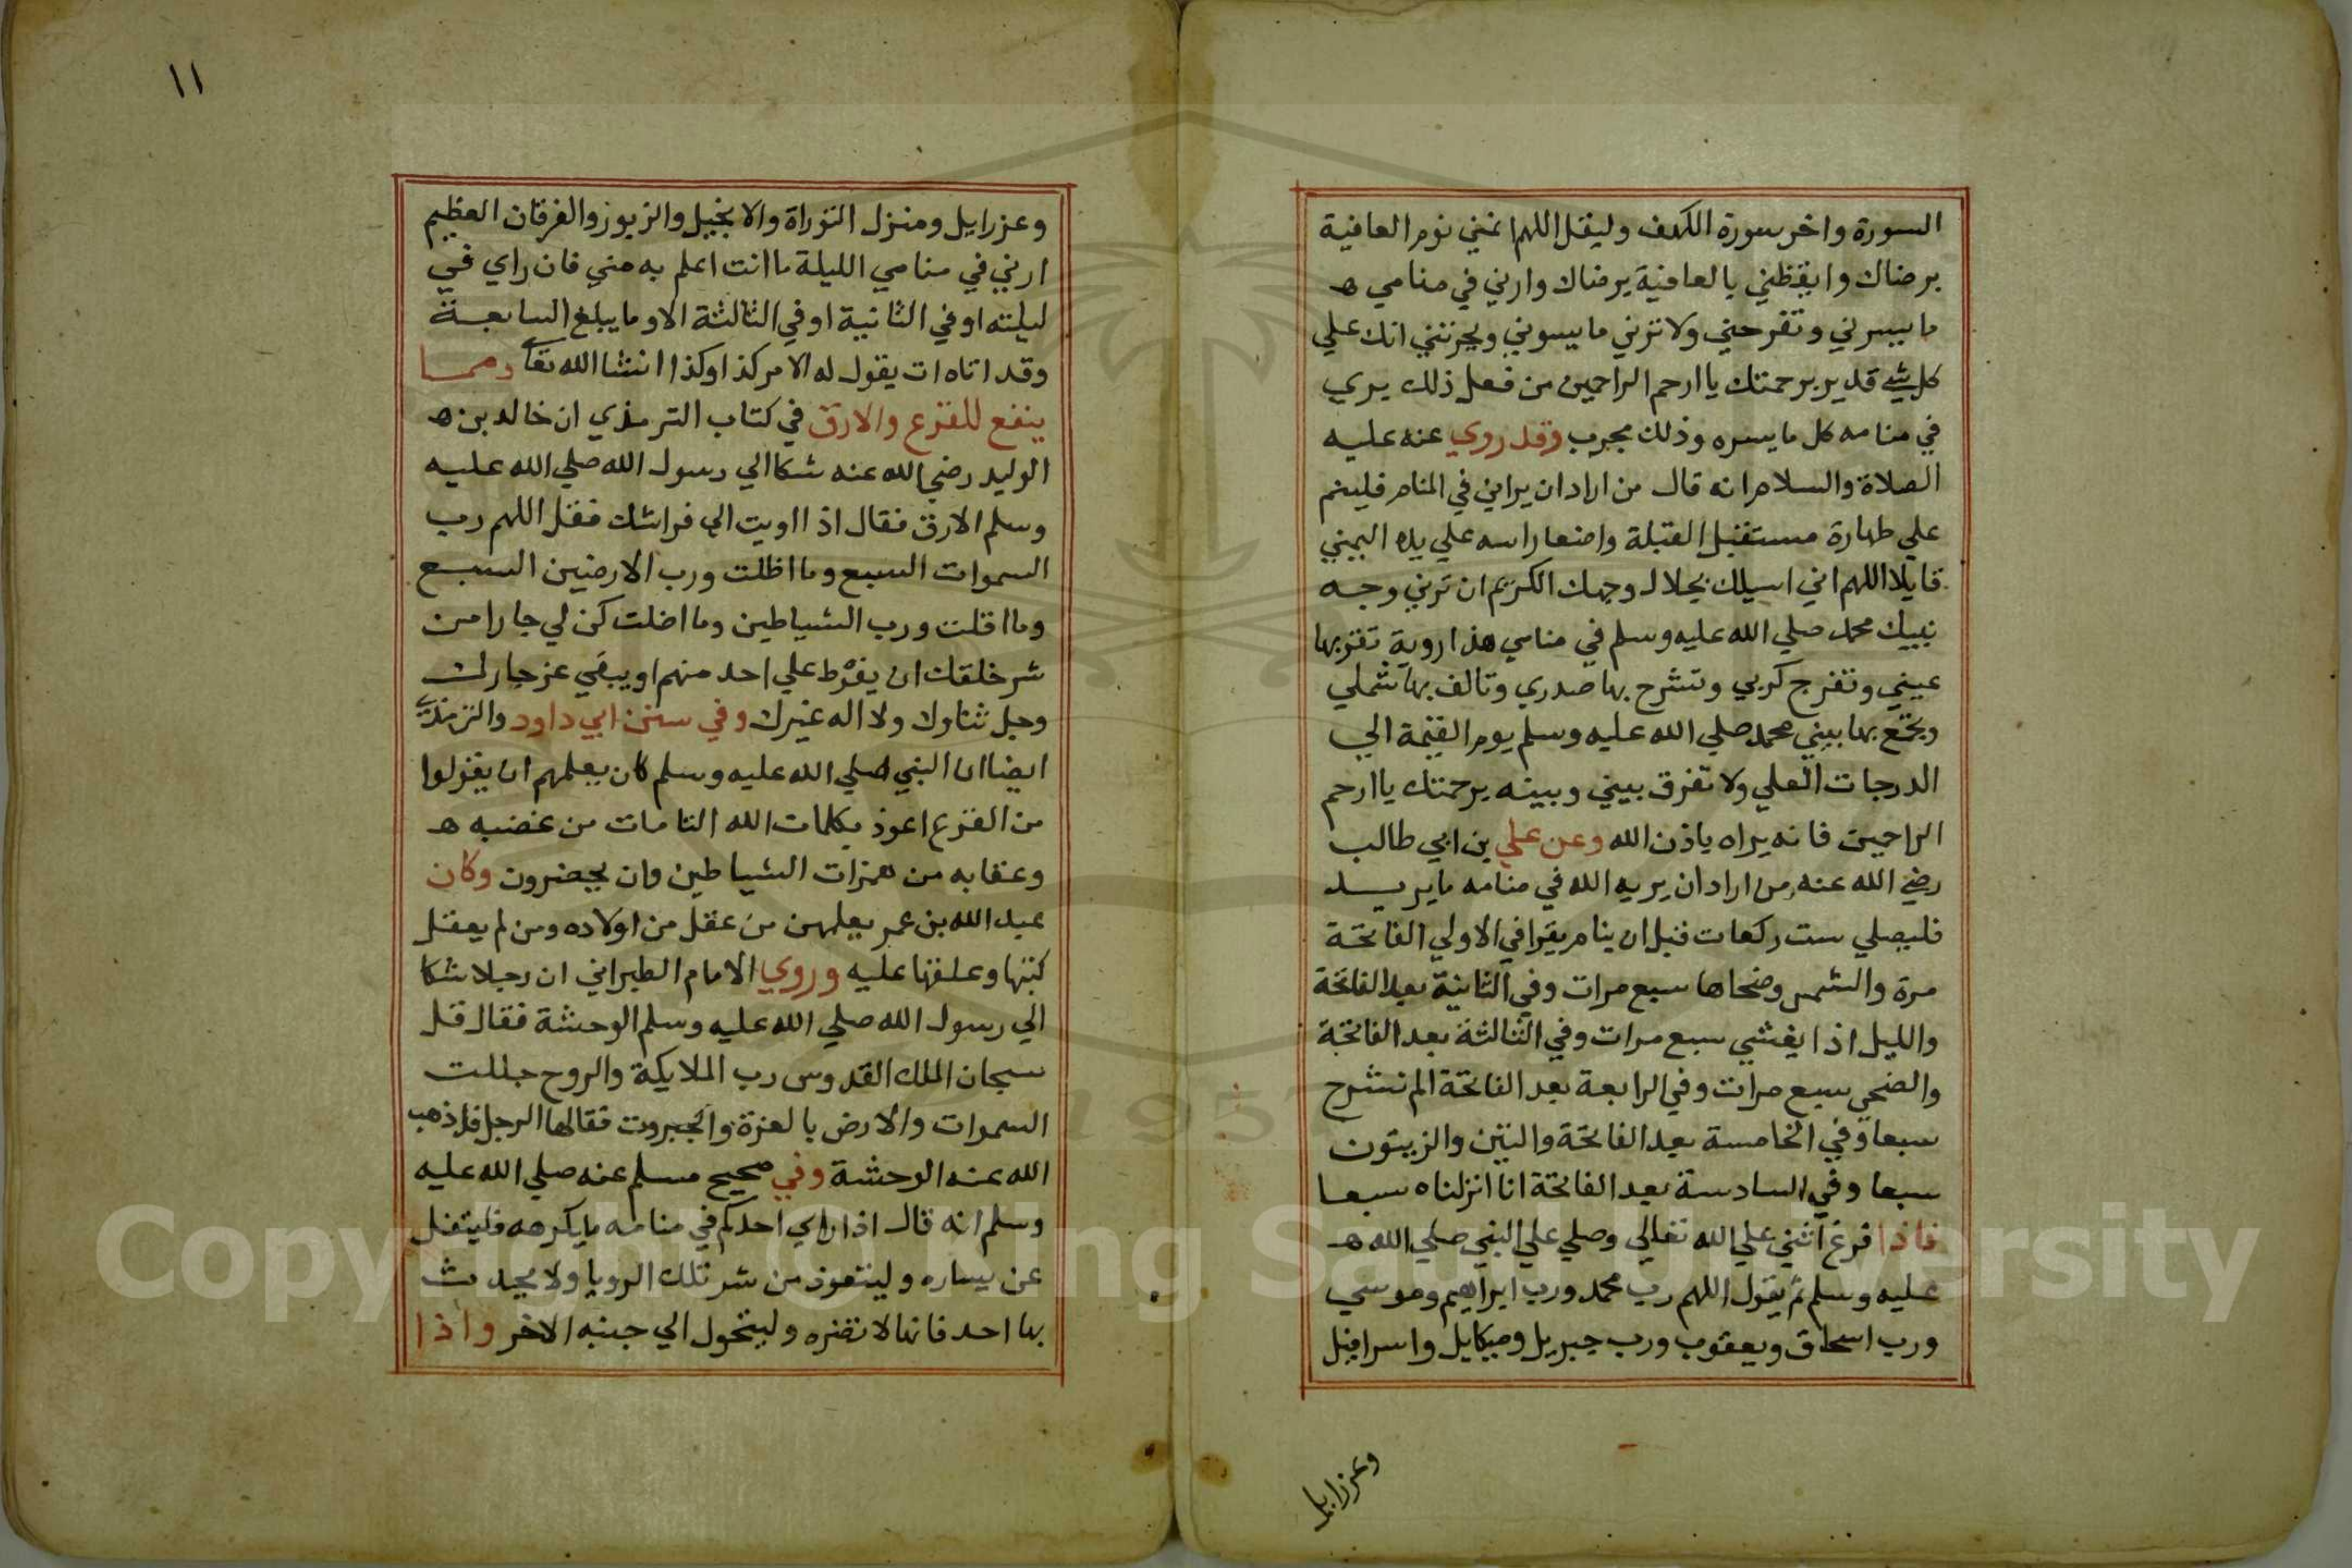 السورة واخر سورة الكهف وليقل اللهم انمني نوم العافية
برضاك وايقظني بالعافية برضاك وارني في منامي ه
ما يسرني وتفرحني ولا ترني ما يسوني ويحزنني انك علي
كل شي قدير برحمتك يا ارحم الراحمين من فعل ذلك يري
في منامه كل ما يسره وذلك مجرب وقد روي عنه عليه
الصلاة والسلام انه قال من اراد ان يراني في المنام فلينم
علي طهارة مستقبل القبلة واضعا راسه علي يده اليمني
قايلا اللهم اني اسيلك بجلال وجهك الكريم ان ترني وجه
نبيك محمد صلي الله عليه وسلم في منامي هذا روية تقر بها
عيني وتفرج كربي وتشرح بها صدري وتالف بها شملي
وتجمع بها بيني محمد صلي الله عليه وسلم يوم القيمة الي
الدرجات العلي ولا تفرق بيني وبينه برحمتك يا ارحم
الراحمين فانه يراه باذن الله وعن علي بن ابي طالب
رضي الله عنه من اراد ان يريه الله في منامه ما يريد
فليصلي ست ركعات قبل ان ينام يقرا في الاولي الفاتحة
مرة والشمس وضحاها سبع مرات وفي الثانية بعد الفاتحة
والليل اذا يغشي سبع مرات وفي الثالثة بعد الفاتحة
والضحي سبع مرات وفي الرابعة بعد الفاتحة الم نشرح
سبعا وفي الخامسة بعد الفاتحة والتين والزيتون
سبعا وفي السادسة بعد الفاتحة انا انزلناه سبعا
فاذا فرغ اثني علي الله تعالي وصلي علي النبي صلي الله ه
عليه وسلم ثم يقول اللهم رب محمد ورب ابراهيم وموسي
ورب اسحاق ويعقوب ورب جبريل وميكايل واسرافيل
وعزرايل
١١
وعزرايل ومنزل التوراة والانجيل والزبور والفرقان العظيم
ارني في منامي الليلة ما انت اعلم به مني فان راي في
ليلته او في الثانية او في الثالثة الا وما يبلغ السابعة
وقد اتاه ات يقول له الامر كذا وكذا انشا الله تعا ومما
ينفع للفزع والارق في كتاب الترمذي ان خالد بن ه
الوليد رضي الله عنه شكا الي رسول الله صلي الله عليه
وسلم الارق فقال اذا اويت الي فراشك فقل اللهم رب
السموات السبع وما اظلت ورب الارضين السبع
وما اقلت ورب الشياطين وما اضلت كن لي جارا من
شر خلقك ان يفرط علي احد منهم او يبغي عز جارك
وجل ثناوك ولا اله غيرك وفي سنن ابي داود والترمذي
ايضا ان النبي صلي الله عليه وسلم كان يعلمهم ان يقولوا
من الفزع اعوذ بكلمات الله التامات من غضبه ه
وعقابه من همزات الشياطين وان يحضرون وكان
عبد الله بن عمر يعلمهن من عقل من اولاده ومن لم يعقل
كتبها وعلقها عليه وروي الامام الطبراني ان رجلا شكا
الي رسول الله صلي الله عليه وسلم الوحشة فقال قل
سبحان الملك القدوس رب الملايكة والروح جللت
السموات والارض بالعزة والجبروت فقالها الرجل فاذهب
الله عنه الوحشة وفي صحيح مسلم عنه صلي الله عليه
وسلم انه قال اذا راي احدكم في منامه ما يكرهه فليتفل
عن يساره وليتعوذ من شر تلك الرويا ولا يحدث
بها احد فانها لا تضره وليتحول الي جنبه الاخر واذا
Copyright © King Saud University
195